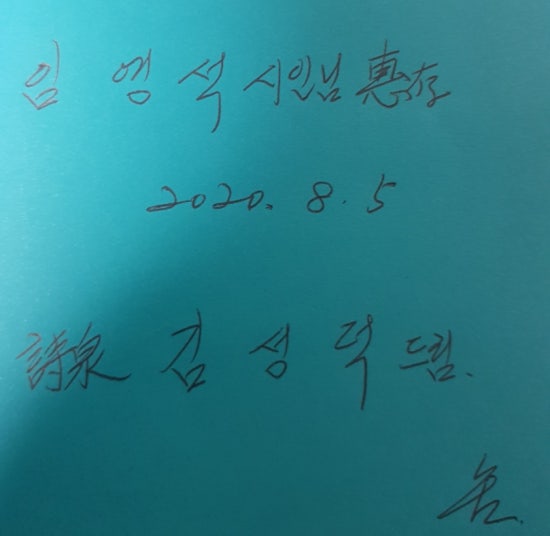 임영석 시인님 惠存
2020. 8. 5
詩泉 김성덕 드림.